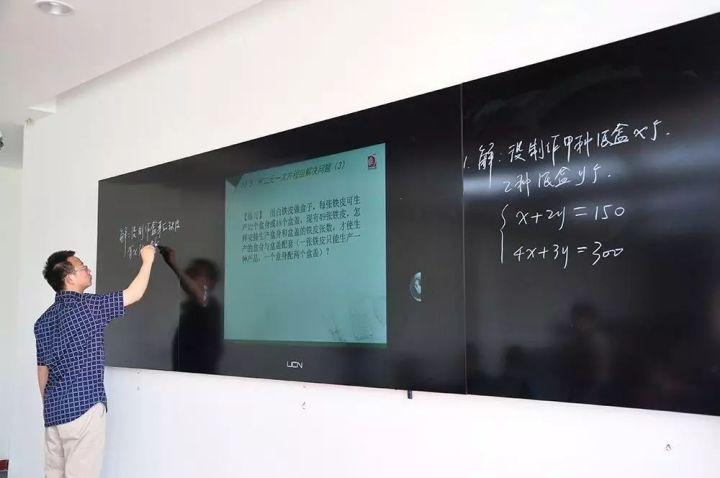 解:设制作盒身
用二元一次方程组解决问题(3)
【练习】 用白铁皮做盒子,每张铁皮可生
产12个盒身或18个盒盖,现有49张铁皮,怎
样安排生产盒身和盒盖的铁皮张数,才使生
产的盒身与盒盖配套(一张铁皮只能生产一
种产品,一个盒身配两个盒盖)?
UCN
1. 解:设制作甲种纸盒x个.
乙种纸盒y个.
x+2y=150
4x+3y=300